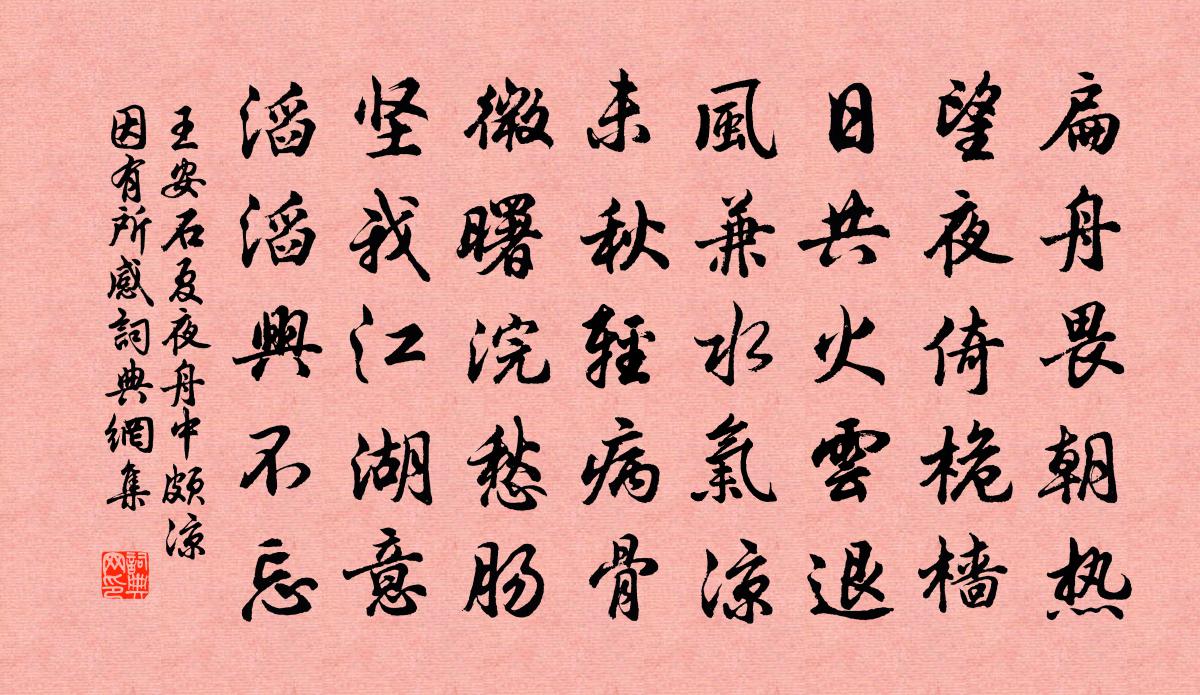 扁舟畏朝热
望夜倚桅樯
日共火雲退
風兼水氣凉
未秋輕病骨
微曙浣愁肠
坚我江湖意
滔滔興不忘
王安石夏夜舟中頗凉
因有所感詞典網集
詞典網印